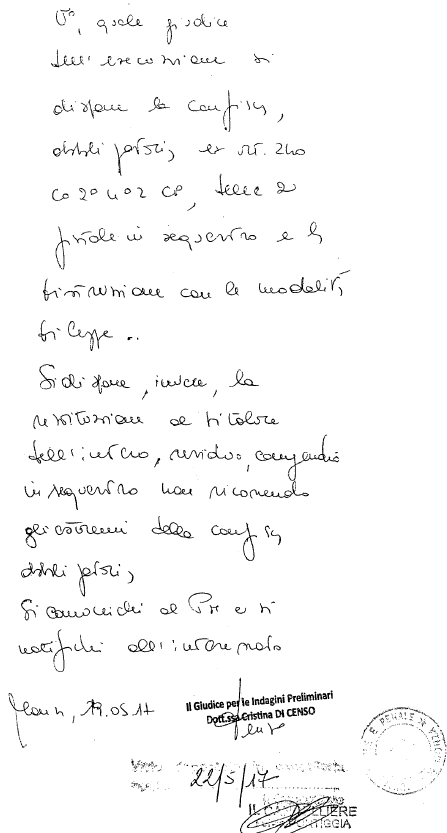 V°, quale giudice
dell'esecuzione si
dispone la confisca,
obbligatoria, ex art. 240
co 2° n° 2 CP, delle 2
pistole in sequestro e la
distruzione con le modalità
di legge ..
Si dispone, invece, la
restituzione al titolare
dell'intero, residuo, compendio
in sequestro non ricorrendo
gli estremi della confisca
obbligatoria,
Si comunichi al PM e si
notifichi all'interessato
19.05.17
Il Giudice per le Indagini Preliminari
Dott.ssa Cristina DI CENSO
22/5/17
IL CANCELLIERE
E PENALE